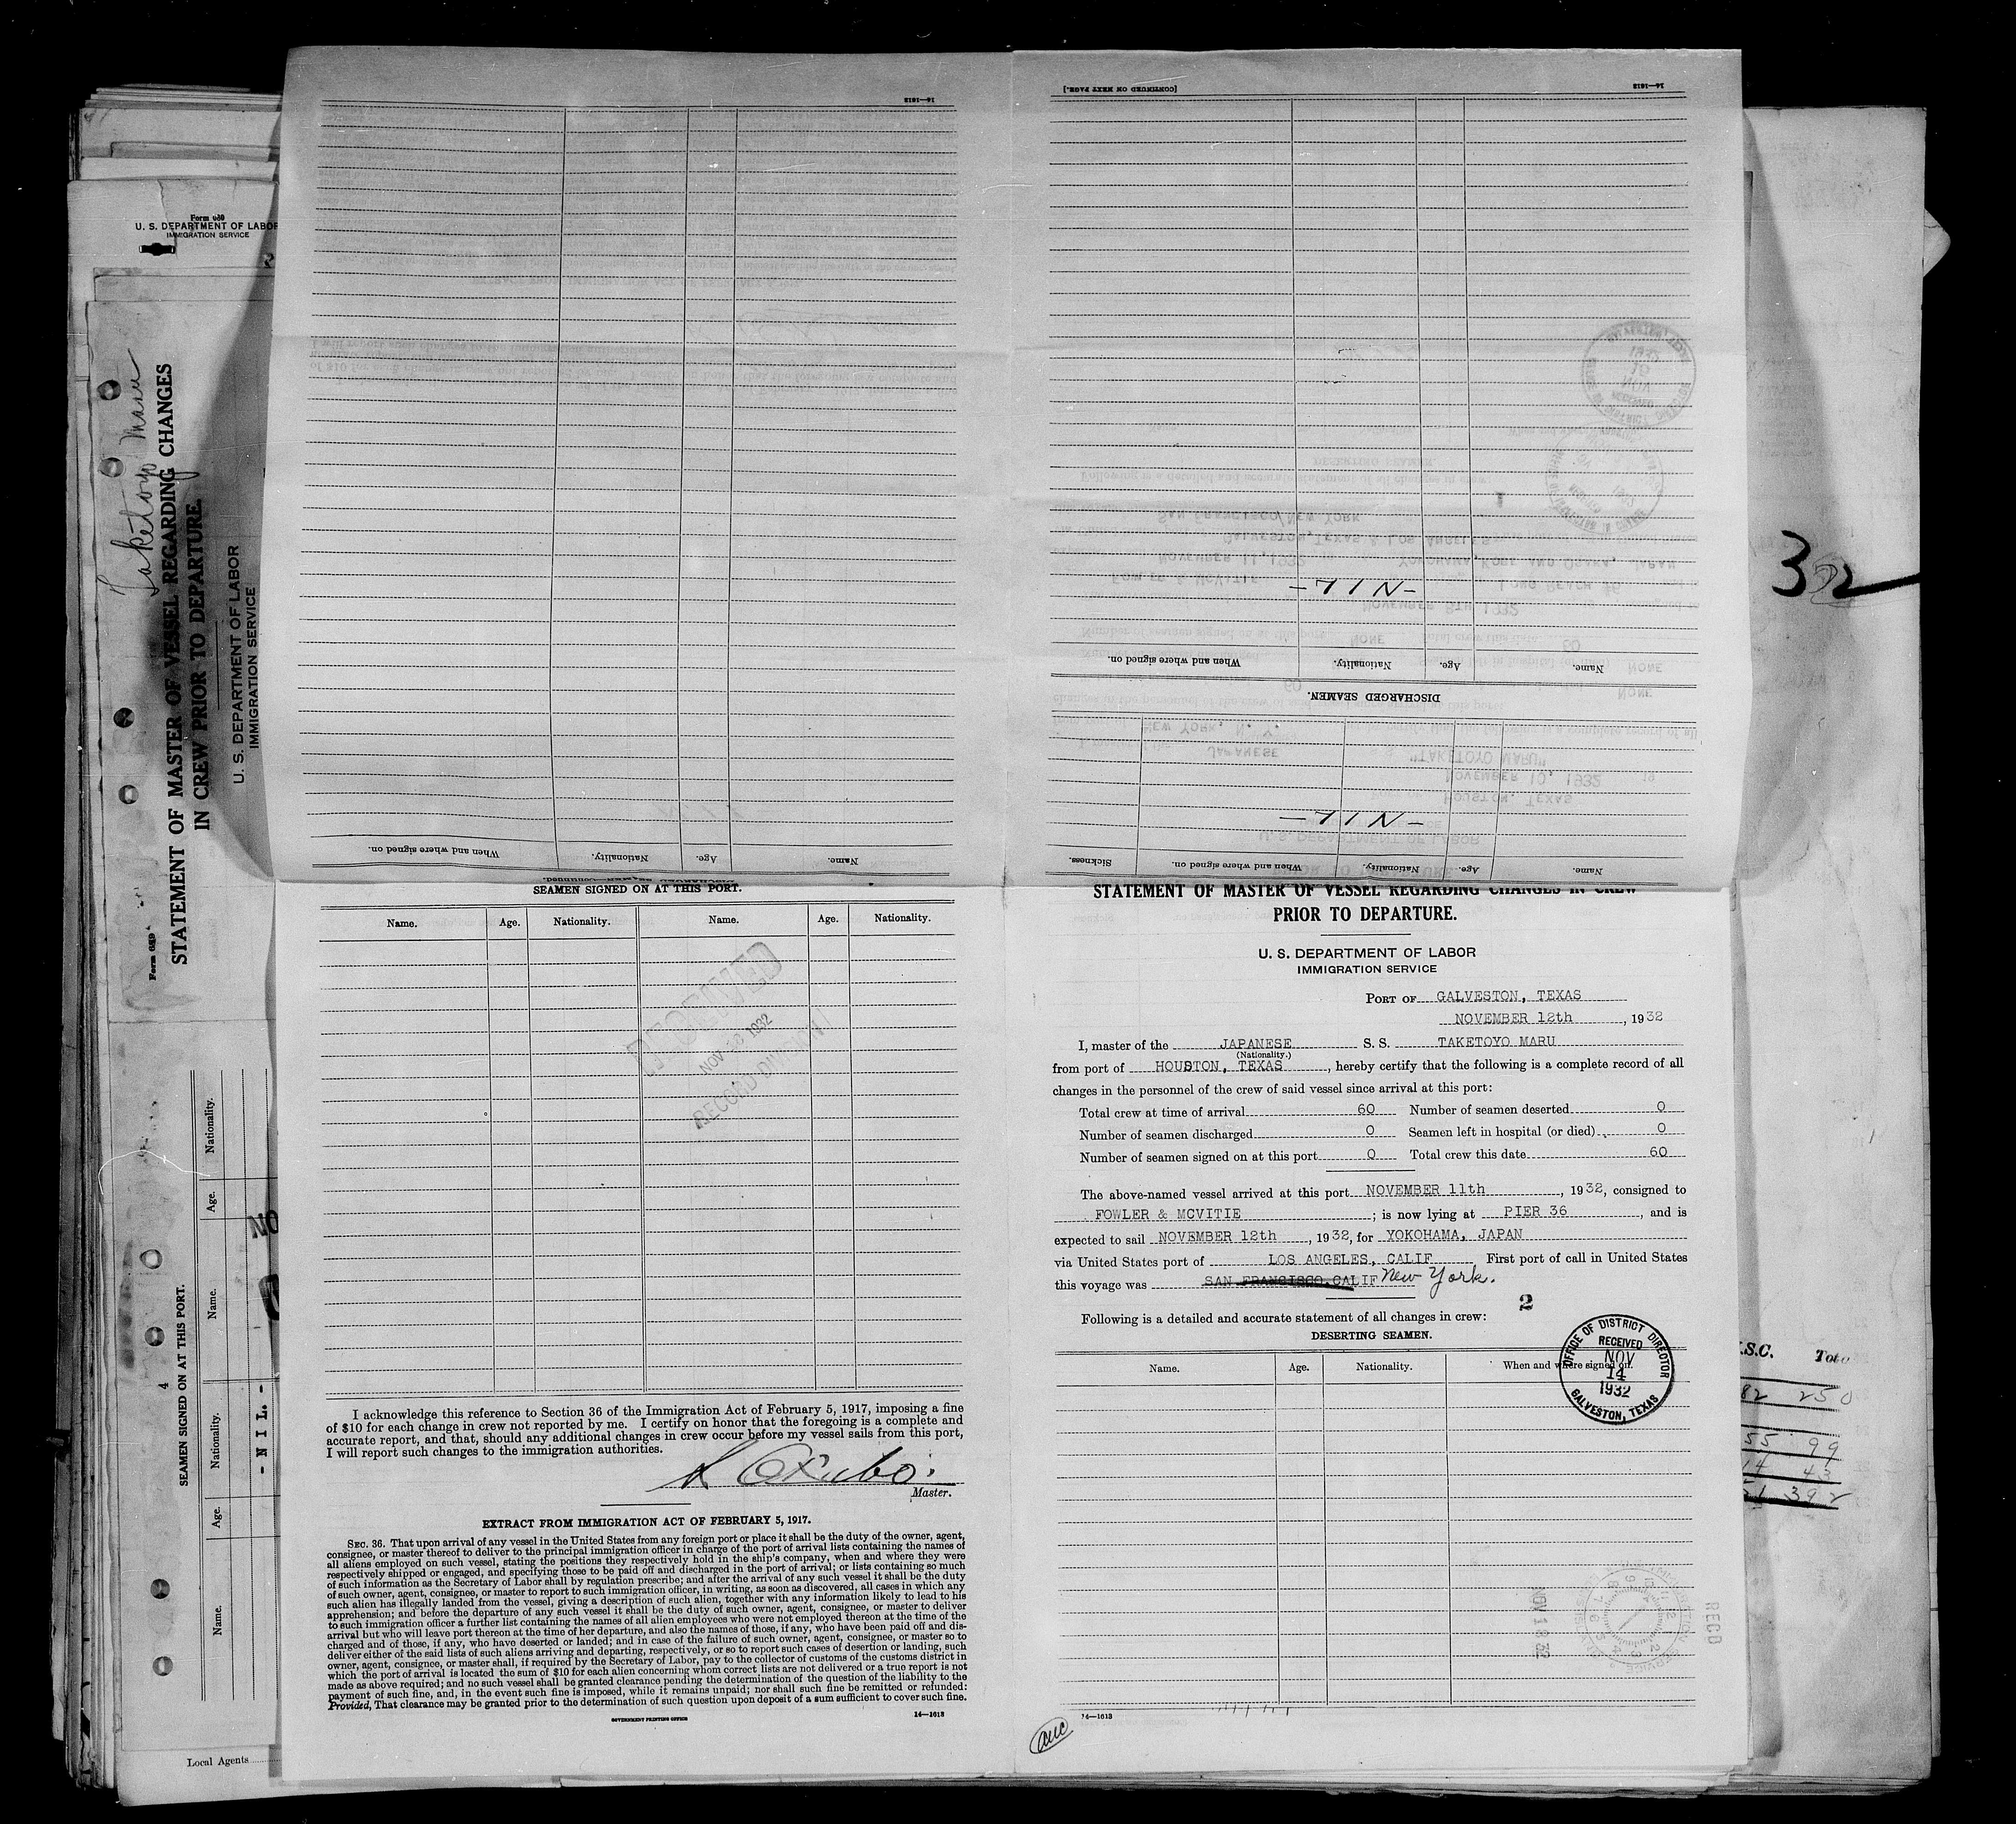 Form 680
U. S. DEPARTMENT OF LABOR
IMMIGRATION SERVICE
Taketoyo Maru
Form 689
STATEMENT OF MASTER OF VESSEL REGARDING CHANGES
IN CREW PRIOR TO DEPARTURE.
U. S. DEPARTMENT OF LABOR
IMMIGRATION SERVICE
4
SEAMEN SIGNED ON AT THIS PORT.
Name. Age. Nationality. Name. Age. Nationality.
- N I L. -
NO
Local Agents
14—1613
Name. Age. Nationality. When and where signed on.
[CONTINUED ON NEXT PAGE.]
14—1613
-NIL-
Name. Age. Nationality. When and where signed on.
DISCHARGED SEAMEN.
-NIL-
Name. Age. Nationality. When and where signed on. Sickness.
SEAMEN SIGNED ON AT THIS PORT.
Name. Age. Nationality. Name. Age. Nationality.
RECEIVED
NOV 18 1932
RECORD DIVISION
I acknowledge this reference to Section 36 of the Immigration Act of February 5, 1917, imposing a fine
of $10 for each change in crew not reported by me. I certify on honor that the foregoing is a complete and
accurate report, and that, should any additional changes in crew occur before my vessel sails from this port,
I will report such changes to the immigration authorities.
K Okubo.
Master.
EXTRACT FROM IMMIGRATION ACT OF FEBRUARY 5, 1917.
SEC. 36. That upon arrival of any vessel in the United States from any foreign port or place it shall be the duty of the owner, agent,
consignee, or master thereof to deliver to the principal immigration officer in charge of the port of arrival lists containing the names of
all aliens employed on such vessel, stating the positions they respectively hold in the ship's company, when and where they were
respectively shipped or engaged, and specifying those to be paid off and discharged in the port of arrival; or lists containing so much
of such information as the Secretary of Labor shall by regulation prescribe; and after the arrival of any such vessel it shall be the duty
of such owner, agent, consignee, or master to report to such immigration officer, in writing, as soon as discovered, all cases in which any
such alien has illegally landed from the vessel, giving a description of such alien, together with any information likely to lead to his
apprehension; and before the departure of any such vessel it shall be the duty of such owner, agent, consignee, or master to deliver
to such immigration officer a further list containing the names of all alien employees who were not employed thereon at the time of the
arrival but who will leave port thereon at the time of her departure, and also the names of those, if any, who have been paid off and dis-
charged and of those, if any, who have deserted or landed; and in case of the failure of such owner, agent, consignee, or master so to
deliver either of the said lists of such aliens arriving and departing, respectively, or so to report such cases of desertion or landing, such
owner, agent, consignee, or master shall, if required by the Secretary of Labor, pay to the collector of customs of the customs district in
which the port of arrival is located the sum of $10 for each alien concerning whom correct lists are not delivered or a true report is not
made as above required; and no such vessel shall be granted clearance pending the determination of the question of the liability to the
payment of such fine, and, in the event such fine is imposed, while it remains unpaid; nor shall such fine be remitted or refunded:
Provided, That clearance may be granted prior to the determination of such question upon deposit of a sum sufficient to cover such fine.
GOVERNMENT PRINTING OFFICE
14—1613
STATEMENT OF MASTER OF VESSEL REGARDING CHANGES IN CREW
PRIOR TO DEPARTURE.
U. S. DEPARTMENT OF LABOR
IMMIGRATION SERVICE
PORT OF GALVESTON, TEXAS
NOVEMBER 12th, 1932
I, master of the JAPANESE S. S. TAKETOYO MARU
(Nationality.)
from port of HOUSTON, TEXAS, hereby certify that the following is a complete record of all
changes in the personnel of the crew of said vessel since arrival at this port:
Total crew at time of arrival 60 Number of seamen deserted 0
Number of seamen discharged 0 Seamen left in hospital (or died) 0
Number of seamen signed on at this port 0 Total crew this date 60
The above-named vessel arrived at this port NOVEMBER 11th, 1932, consigned to
FOWLER & MCVITIE; is now lying at PIER 36, and is
expected to sail NOVEMBER 12th, 1932, for YOKOHAMA, JAPAN
via United States port of LOS ANGELES, CALIF First port of call in United States
this voyage was SAN FRANCISCO, CALIF New York.
2
Following is a detailed and accurate statement of all changes in crew:
DESERTING SEAMEN.
Name. Age. Nationality. When and where signed on.
OFFICE OF DISTRICT DIRECTOR
RECEIVED
NOV
14
1932
GALVESTON, TEXAS
NOV 18 32
RECD
14—1613
auc
32
S.C. Tota
82 250
55 99
14 43
51 392